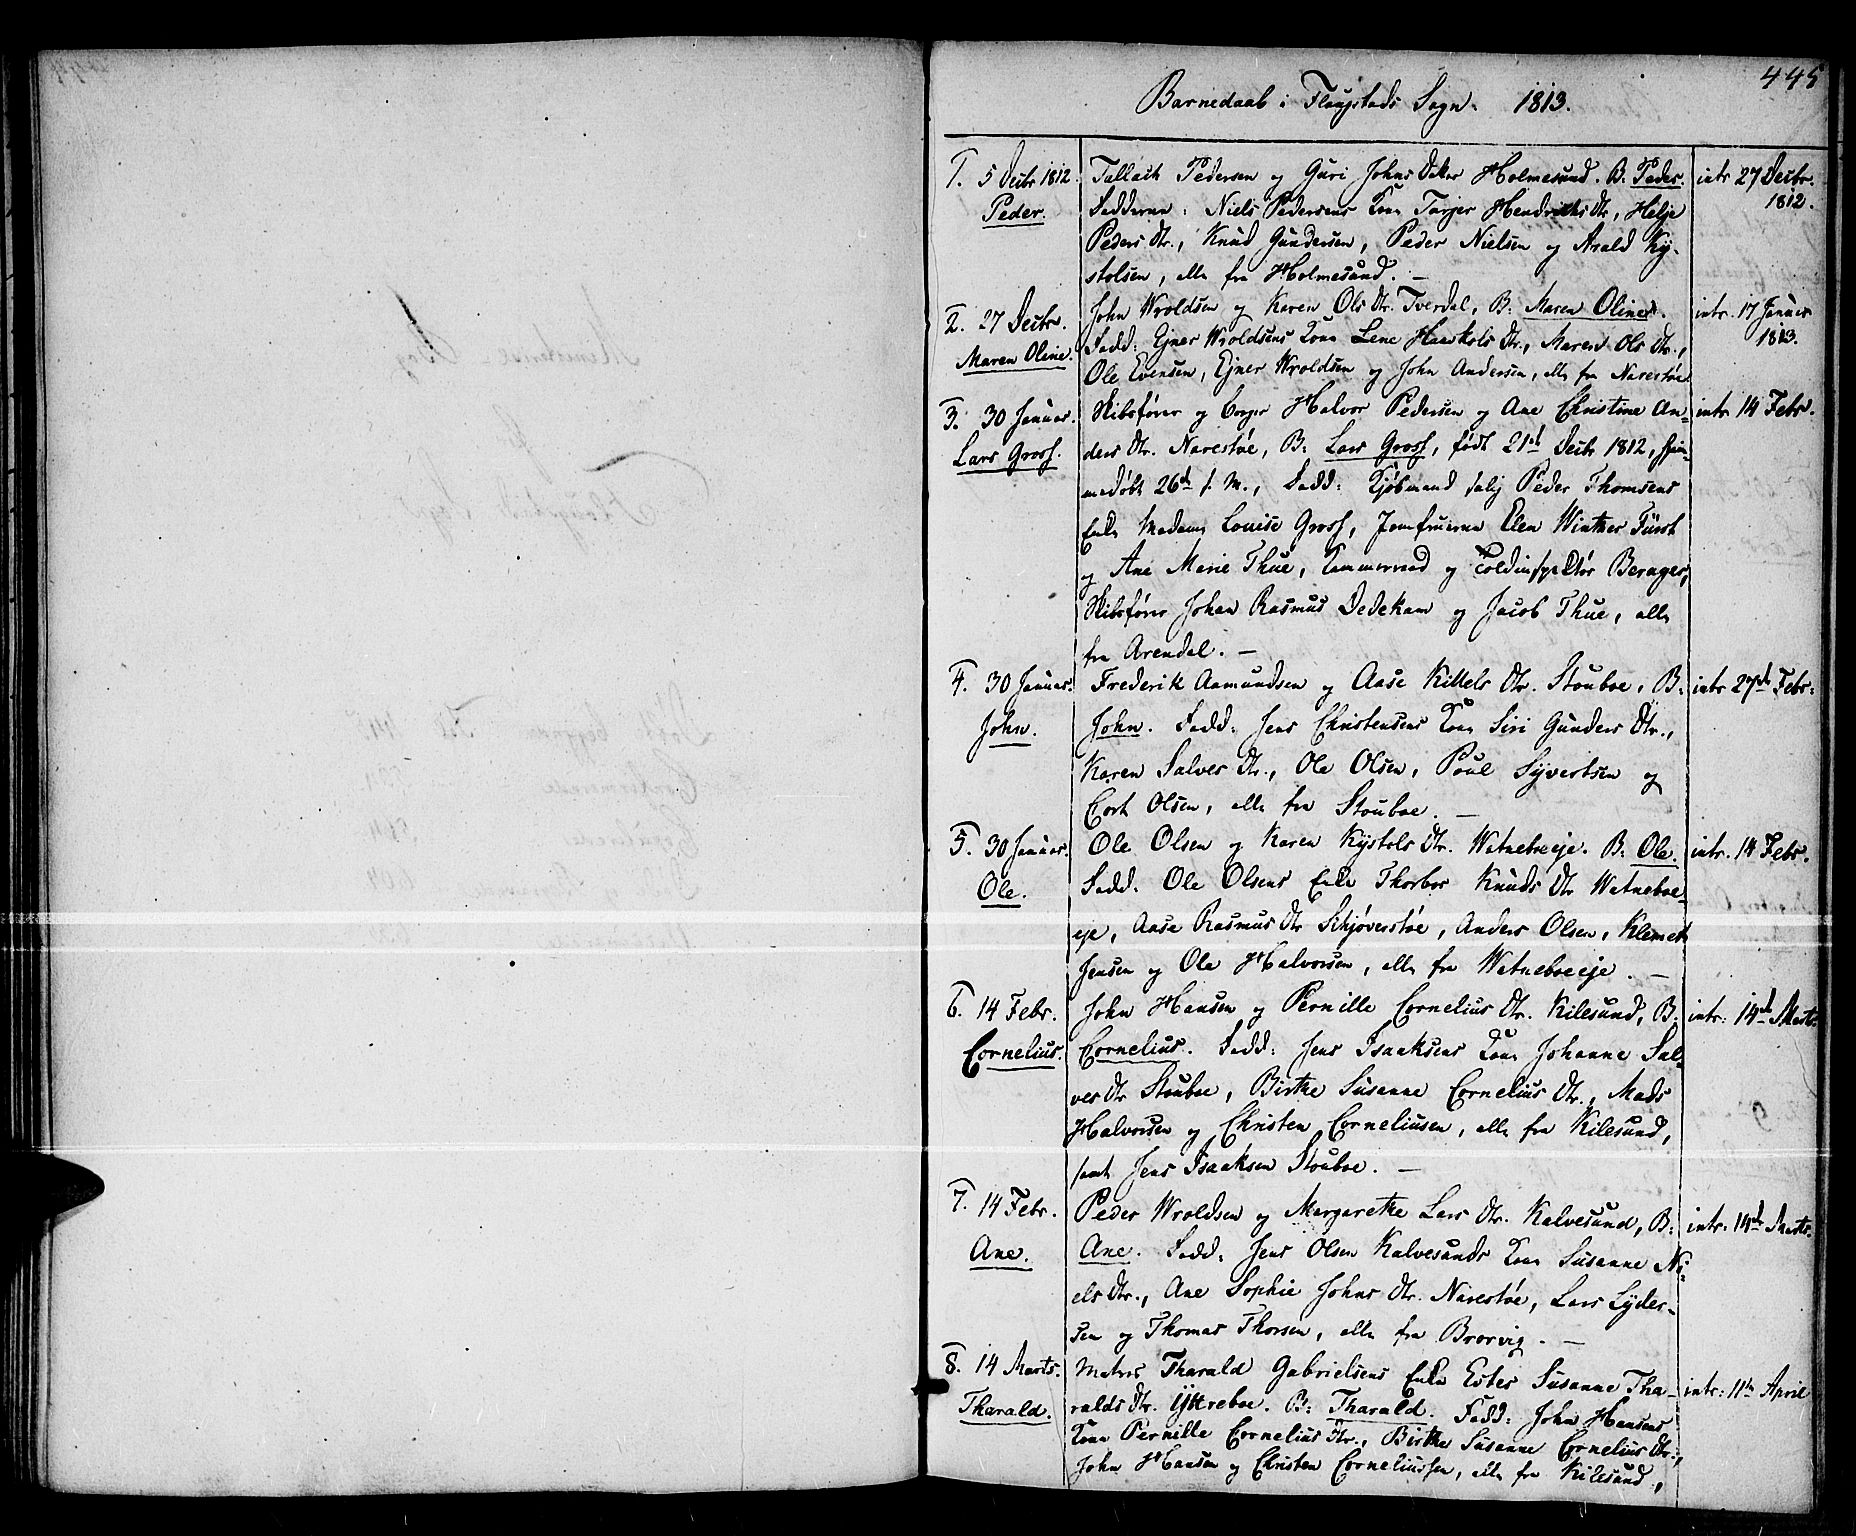 445
Barnedaab i Flaugstads Sogn. 1813.
1. 5 Decbr 1812. Tallach Pedersen og Guri Johns Datter Holmesund. B: Peder. intr 27 Decbr.
Peder. Fadderne: Niels Pedersens Kone Tarjer Hendrichs Dtr, Helje 1812.
Peders Dtr., Knud Gundersen, Peder Nielsen og Arald Ky-
stolsen, alle fra Holmesund. —
2. 27 Decbr. John Wroldsen og Karen Ols Dtr. Tverdal, B: Maren Oline. intr. 17 Januar
Maren Oline. Fadd: Ejner Wroldsens Kone Lene Haaskols Dtr., Maren Ols Dtr., 1813.
Ole Evensen, Ejner Wroldsen og John Andersen, alle fra Narestøe
3. 30 Januar. Skibsfører og borger Halvor Pedersen og Ane Christine An- intr 14 Febr.
Lars Grosf. ders Dtr. Narestøe, B: Lars Grosf, født 21d Decbr 1812, hjem-
medøbt 26d s. M., Fadd: Kjøbmand salig Peder Thomsens
Enke Madame Louise Grosf, Jomfruerne Elen Winther Fürst
og Ane Marie Thue, Kammerraad og Toldinspektør Berager,
Skibsfører Johan Rasmus Dedekam og Jacob Thue, alle
fra Arendal. —
4. 30 Januar. Frederik Aamundsen og Aase Kittels Dtr. Stouboe, B: intr 27de Febr:
John. John. Fadd: Jens Christensens Kone Siri Gunders Dtr.,
Karen Salves Dtr., Ole Olsen, Poul Syvertsen og
Cort Olsen, alle fra Stouboe. —
5. 30 Januar. Ole Olsen og Karen Kystols Dtr. Watneboeeje. B: Ole. intr. 14 Febr.
Ole. Fadd: Ole Olsens Enke Thorbor Knuds Dtr Watneboe-
eje, Aase Rasmus Dtr Schjøverstøe, Anders Olsen, Klemet
Jensen og Ole Halvorsen, alle fra Watneboeeje. —
6. 14 Febr. John Hansen og Pernille Cornelius Dtr. Kilesund, B. intr: 14d Marts.
Cornelius. Cornelius. Fadd: Jens Isaaksens Kone Johanne Sal-
ves Dtr Stouboe, Birthe Susanne Cornelius Dtr., Mads
Halvorsen og Christen Corneliusen, alle fra Kilesund,
samt Jens Isaaksen Stouboe. —
7. 14 Febr. Peder Wroldsen og Margarethe Lars Dtr. Kalvesund, B: intr: 14d Marts.
Ane. Ane. Fadd: Jens Olsen Kalvesunds Kone Susanne Ni-
els Dtr., Ane Sophie Johns Dtr. Narestøe, Lars Lyder-
sen og Thomas Thorsen, alle fra Brorvig. —
8. 14 Marts. Matros Tharald Gabrielsens Enke Ester Susanne Tha- intr: 11te April
Tharald. ralds Dtr. Yttreboe. B: Tharald. Fadd: John Hansens
Kone Pernille Cornelius Dtr., Birthe Susanne Cornelius Dtr.,
John Hansen og Christen Corneliussen, alle fra Kilesund,